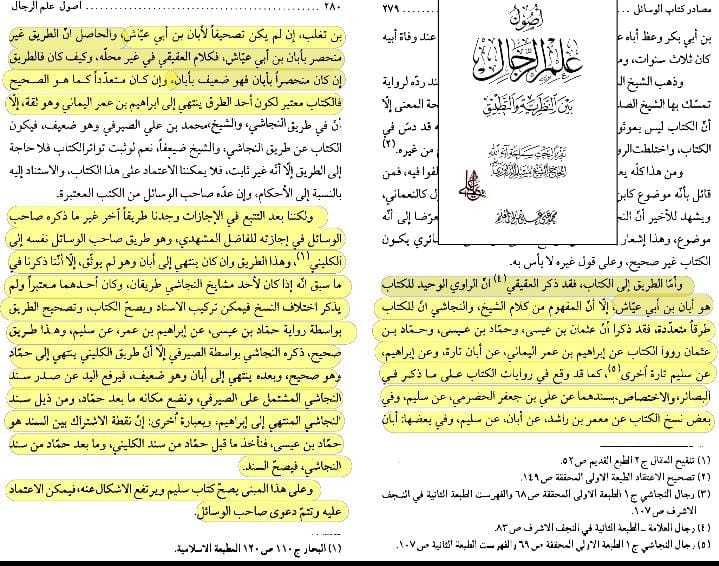 مصادر كتاب الوسائل ٢٧٩
بن أبي بكر وعظ أباه عند وفاة أبيه
كان ثلاث سنوات، وم
وذهب الشيخ رده لرواية
تمسّك بها الشيخ الصد حة المعنى إلّا
أنّ الكتاب ليس بموثو قد دسّ في
الكتاب، واختلطت الرو من غيره.(٢)
ومن هذا كلّه يع لفوا فيه، فمن
قائل بأنّه موضوع كابن ول كالنعماني،
ويشهد للأخير أنّ النج عرّضا إلى أنّه
موضوع، وهذا إشعار ائري يكون
الكتاب غير صحيح، وعلى قول غيره لا بأس به.
وأمّا الطريق إلى الكتاب، فقد ذكر العقيقي(٤) أنّ الراوي الوحيد للكتاب
هو أبان بن أبي عيّاش، إلّا أنّ المفهوم من كلام الشيخ، والنجاشي انّ للكتاب
طرقاً متعدّدة، فقد ذكرا أن عثمان بن عيسى، وحمّاد بن عيسى، وحمّاد بن
عثمان رووا الكتاب عن إبراهيم بن عمر اليماني، عن أبان تارة، وعن إبراهيم،
عن سليم تارة أخرى(٥) كما قد وقع في روايات الكتاب على ما ذكر في
البصائر، والاختصاص، بسندهما عن علي بن جعفر الحضرمي، عن سليم، وفي
بعض نسخ الكتاب عن معمر بن راشد، عن أبان، عن سليم، وفي بعضها: أبان
(١) تنقيح المقال ج٢ الطبع القديم ص٥٢.
(٢) تصحيح الاعتقاد الطبعة الاولى المحققة ص١٤٩.
(٣) رجال النجاشي ج١ الطبعة الاولى المحققة ص٦٨ والفهرست الطبعة الثانية في النجف
الاشرف ص١٠٧.
(٤) رجال العلامة ـ الطبعة الثانية في النجف الاشرف ص٨٣.
(٥) رجال النجاشي ج١ الطبعة الاولى المحققة ص٦٩ والفهرست الطبعة الثانية ص١٠٧.
أصول
علم الرجال
بين النظرية والتطبيق
٢٨٠ أصول علم الرجال
بن تغلب، إن لم يكن تصحيفاً لأبان بن أبي عيّاش، والحاصل أنّ الطريق غير
منحصر بأبان بن أبي عيّاش، فكلام العقيقي في غير محلّه، وكيف كان فالطريق
إن كان منحصراً بأبان فهو ضعيف بأبان، وإن كان متعدّداً كما هو الصحيح
فالكتاب معتبر لكون أحد الطرق ينتهي إلى إبراهيم بن عمر اليماني وهو ثقة، إلّا
أنّ في طريق النجاشي، والشيخ، محمد بن علي الصيرفي وهو ضعيف، فيكون
الكتاب عن طريق النجاشي، والشيخ ضعيفاً، نعم لو ثبت تواتر الكتاب فلا حاجة
إلى الطريق إلّا أنّه غير ثابت، فلا يمكننا الاعتماد على هذا الكتاب، والاستناد إليه
بالنسبة إلى الأحكام، وإن عدّه صاحب الوسائل من الكتب المعتبرة.
ولكننا بعد التتبع في الإجازات وجدنا طريقاً آخر غير ما ذكره صاحب
الوسائل في إجازته للفاضل المشهدي، وهو طريق صاحب الوسائل نفسه إلى
الكليني(١) وهذا الطريق وان كان ينتهي إلى أبان وهو لم يوثّق، إلّا أنّنا ذكرنا في
ما سبق أنّه إذا كان لأحد مشايخ النجاشي طريقان، وكان أحدهما معتبراً ولم
يذكر اختلاف النسخ فيمكن تركيب الاسناد ويصحّ الكتاب، وتصحيح الطريق
بواسطة رواية حمّاد بن عيسى، عن إبراهيم بن عمر، عن سليم، وهذا طريق
صحيح، ذكره النجاشي بواسطة الصيرفي إلّا أنّ طريق الكليني ينتهي إلى حمّاد
وهو صحيح، وبعده ينتهي إلى أبان وهو ضعيف، فيرفع اليد عن صدر سند
النجاشي المشتمل على الصيرفي، ونضع مكانه ما بعد حمّاد، ومن ذيل سند
النجاشي المنتهي إلى إبراهيم، وبعبارة أخرى: إنّ نقطة الاشتراك بين السند هو
حمّاد بن عيسى، فنأخذ ما قبل حمّاد من سند الكليني، وما بعد حمّاد من سند
النجاشي، فيصحّ السند.
وعلى هذا المبنى يصحّ كتاب سليم ويرتفع الاشكال عنه، فيمكن الاعتماد
عليه وتتمّ دعوى صاحب الوسائل.
(١) البحار ج١١٠ ص١٢٠ المطبعة الاسلامية.